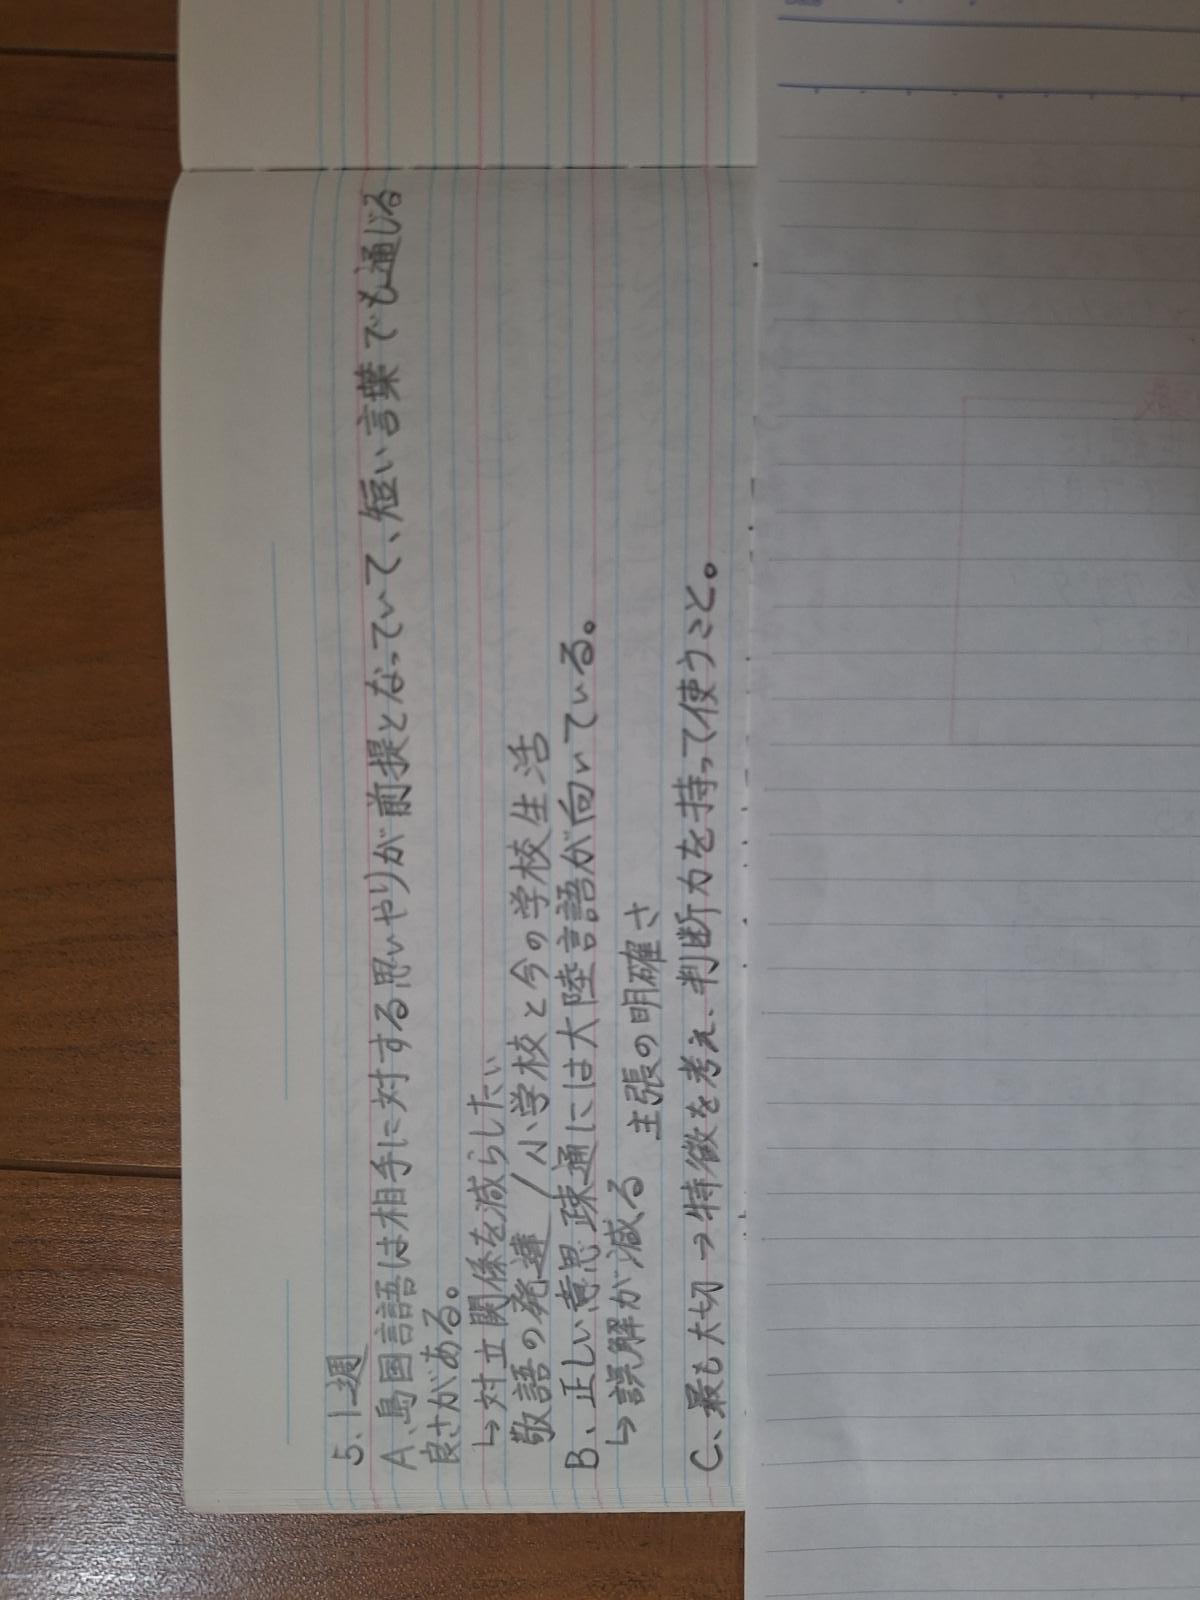 5.1週
A、島国言語は相手に対する思いやりが前提となっていて、短い言葉でも通じる
良さがある。
↳対立関係を減らしたい
敬語の発達/小学校と今の学校生活
B、正しい意思疎通には大陸言語が向いている。
↳誤解が減る 主張の明確さ
C、最も大切→特徴を考え、判断力を持って使うこと。